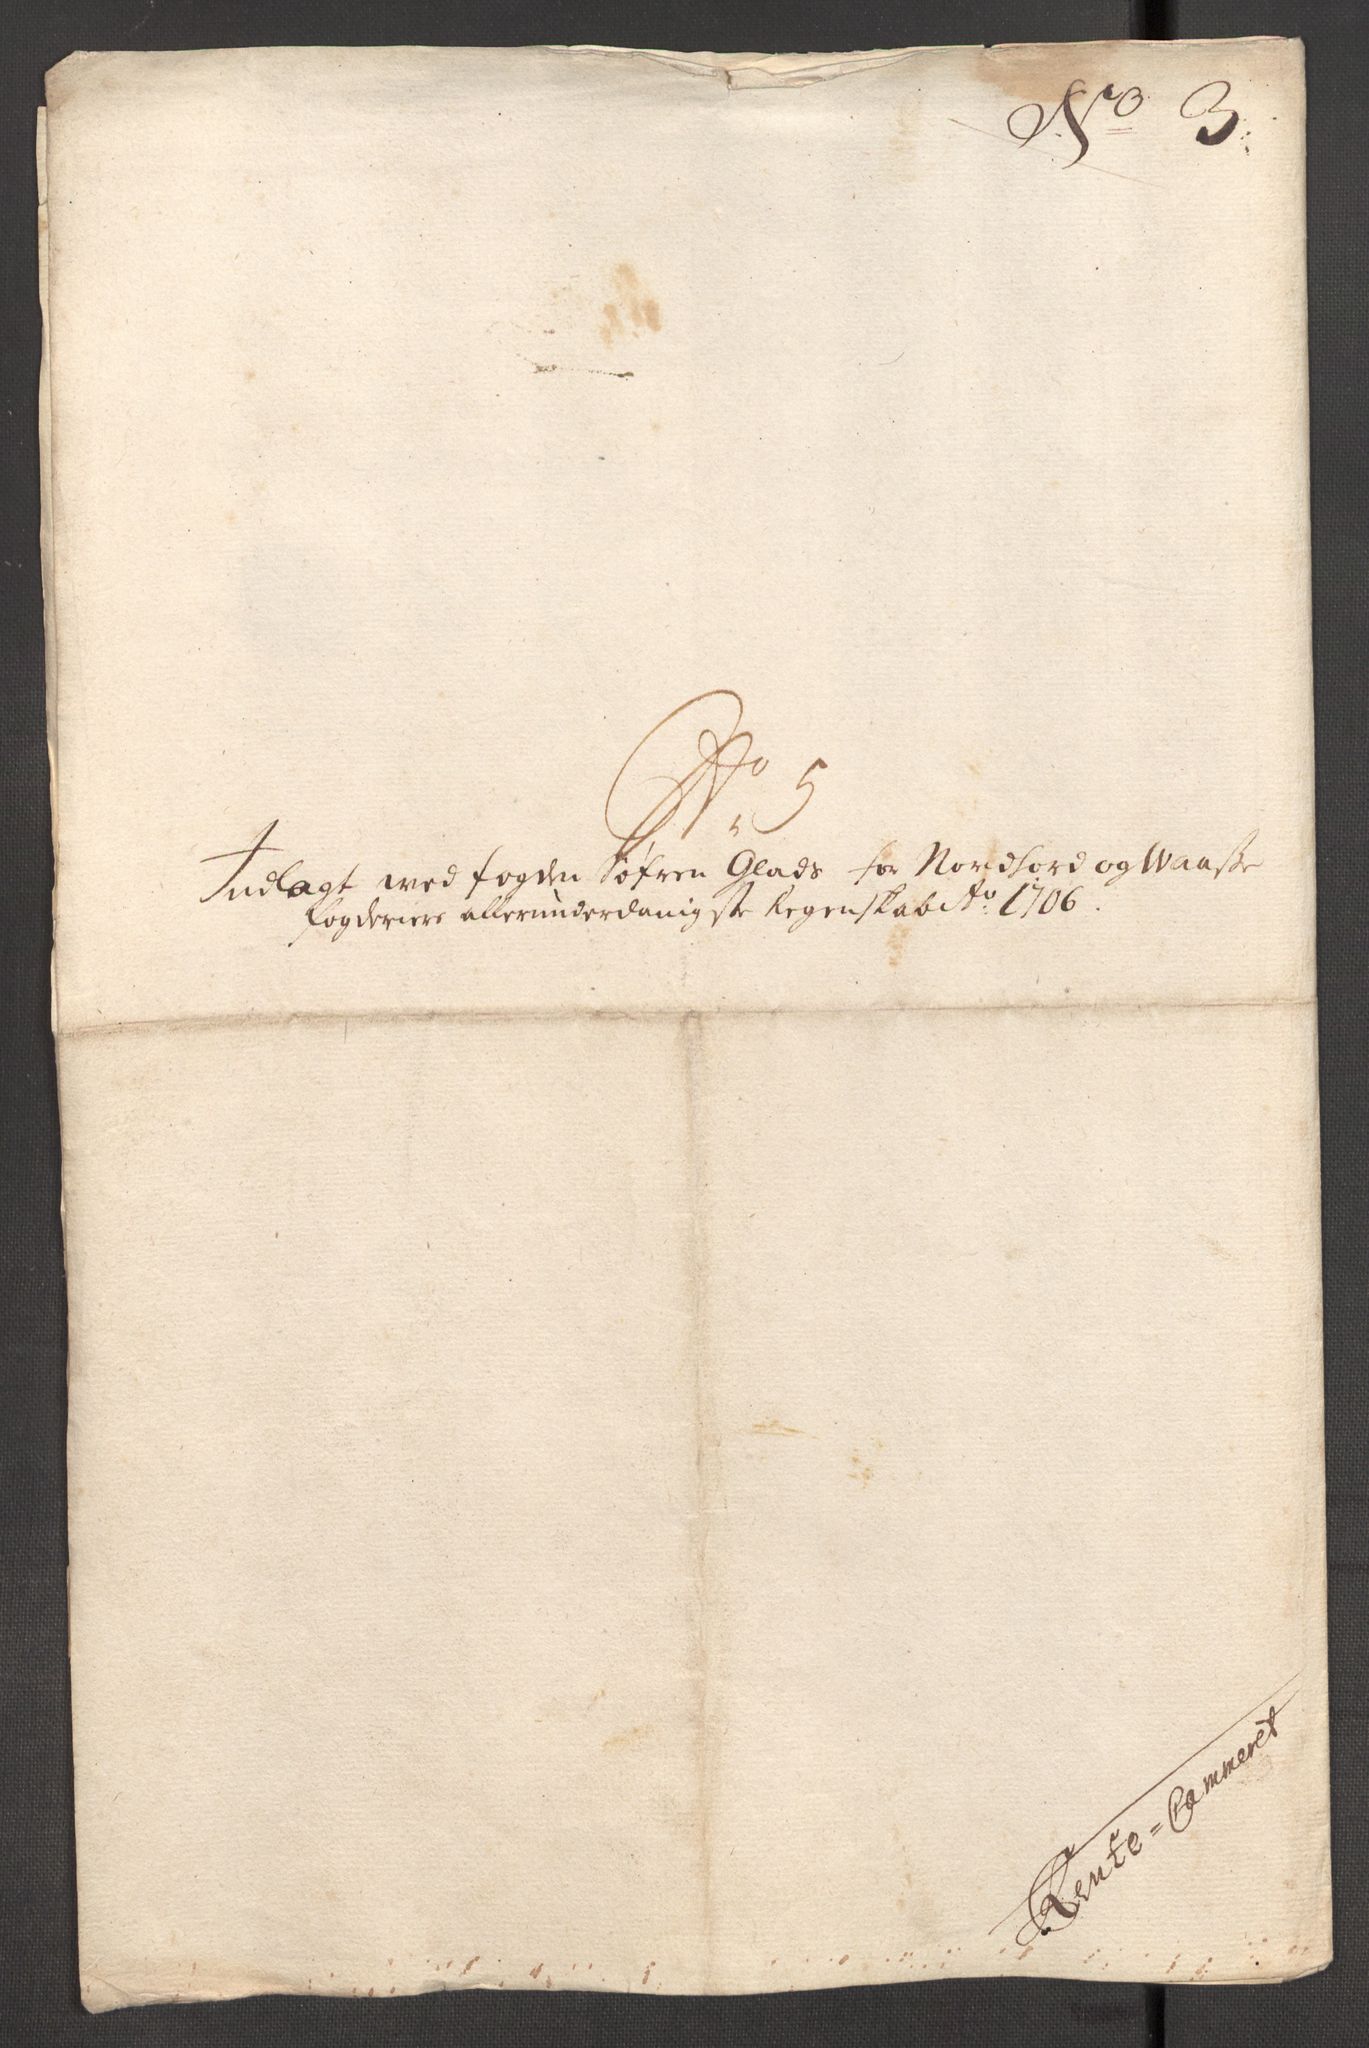 No 3.
No 5
Indlagt med fogden Søfren Glads for Nordhord og Waasse
fogderiers allerunderdanigste Regenskab Ao: 1706.
Rente-Cammeret